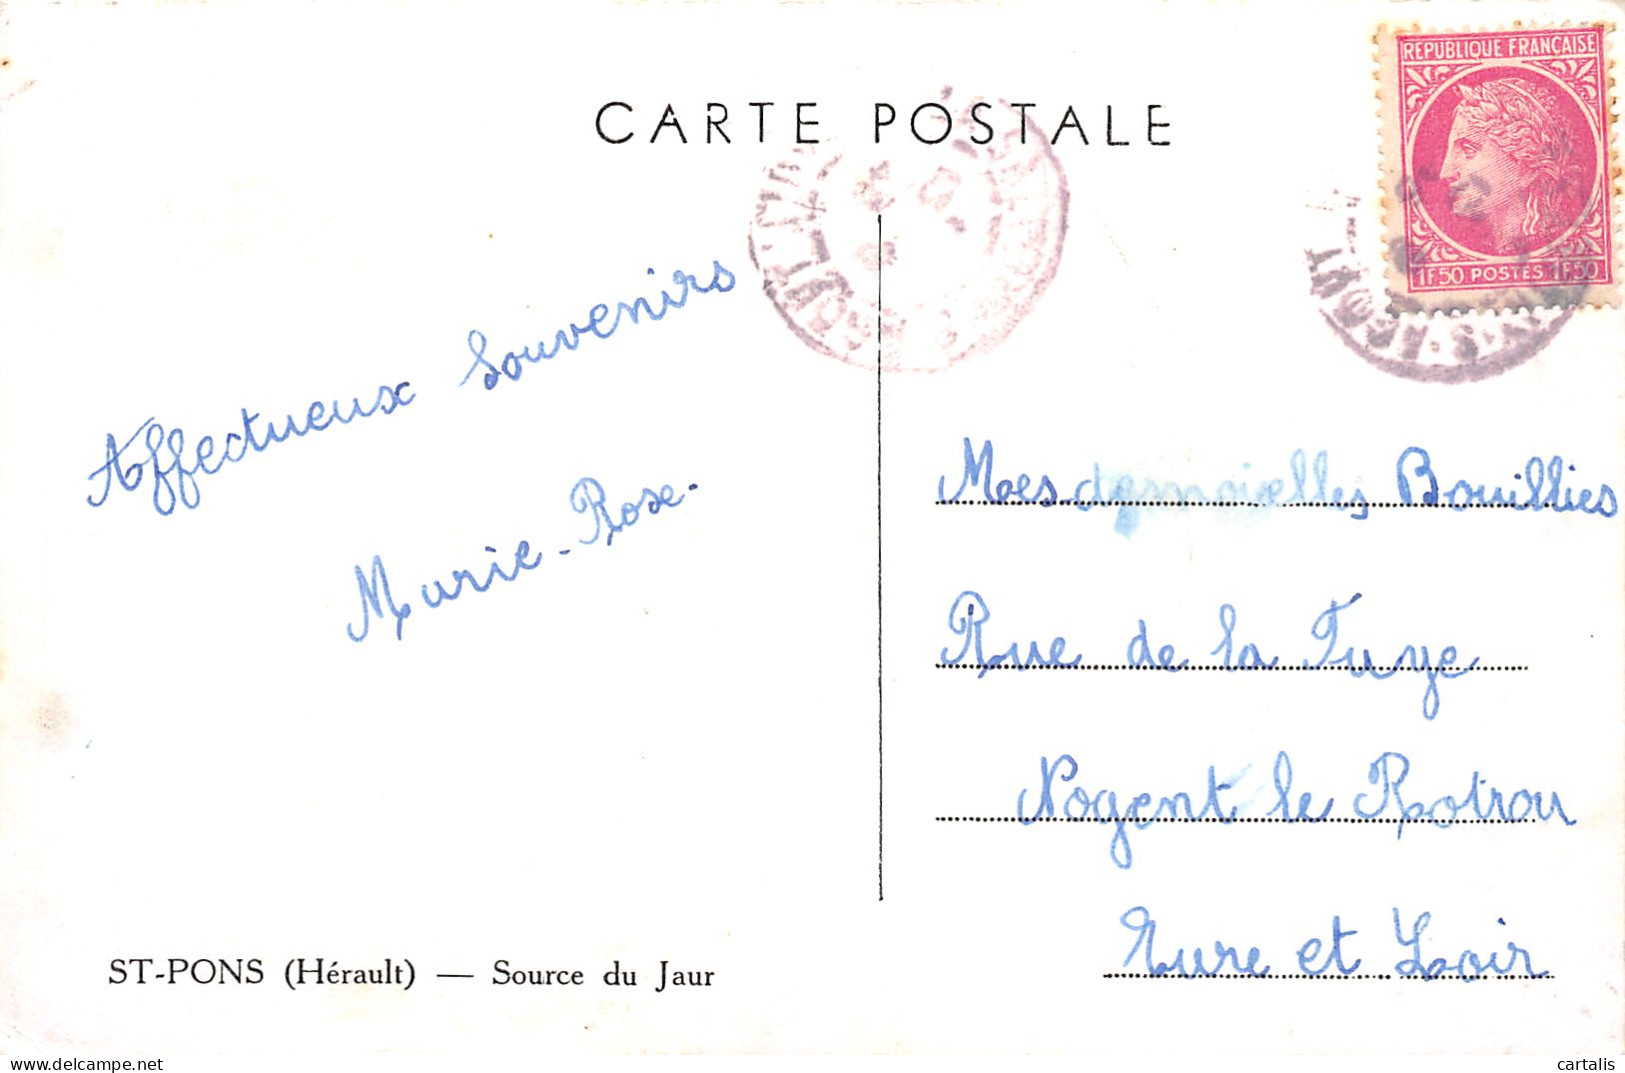 CARTE POSTALE
REPUBLIQUE FRANÇAISE
1F50 POSTES 1F50
Affectueux Souvenirs
Marie-Rose-
Mesdemoiselles Bouillies
Rue de la Fuye
Nogent le Rotrou
Eure et Loir
ST-PONS (Hérault) — Source du Jaur
delcampe.net
cartalis